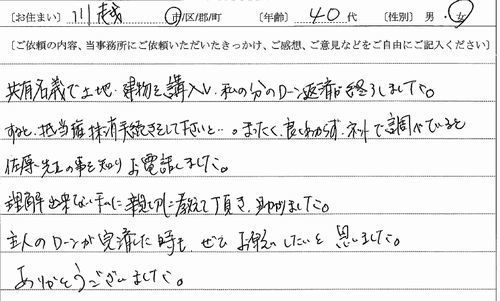 【お住まい】 川越 市/区/郡/町 【年齢】 40 代 【性別】 男・女
【ご依頼の内容、当事務所にご依頼いただいたきっかけ、ご感想、ご意見などをご自由にご記入ください】
共有名義で土地・建物を購入し、私の分のローン返済が終了しました。
すると、抵当権抹消手続きをして下さいと…。まったく良くわからず、ネットで調べていると
佐藤先生の事を知りお電話しました。
理解出来ない私に親切に教えて頂き、助かりました。
主人のローンが完済した時も、ぜひお願いしたいと思いました。
ありがとうございました。